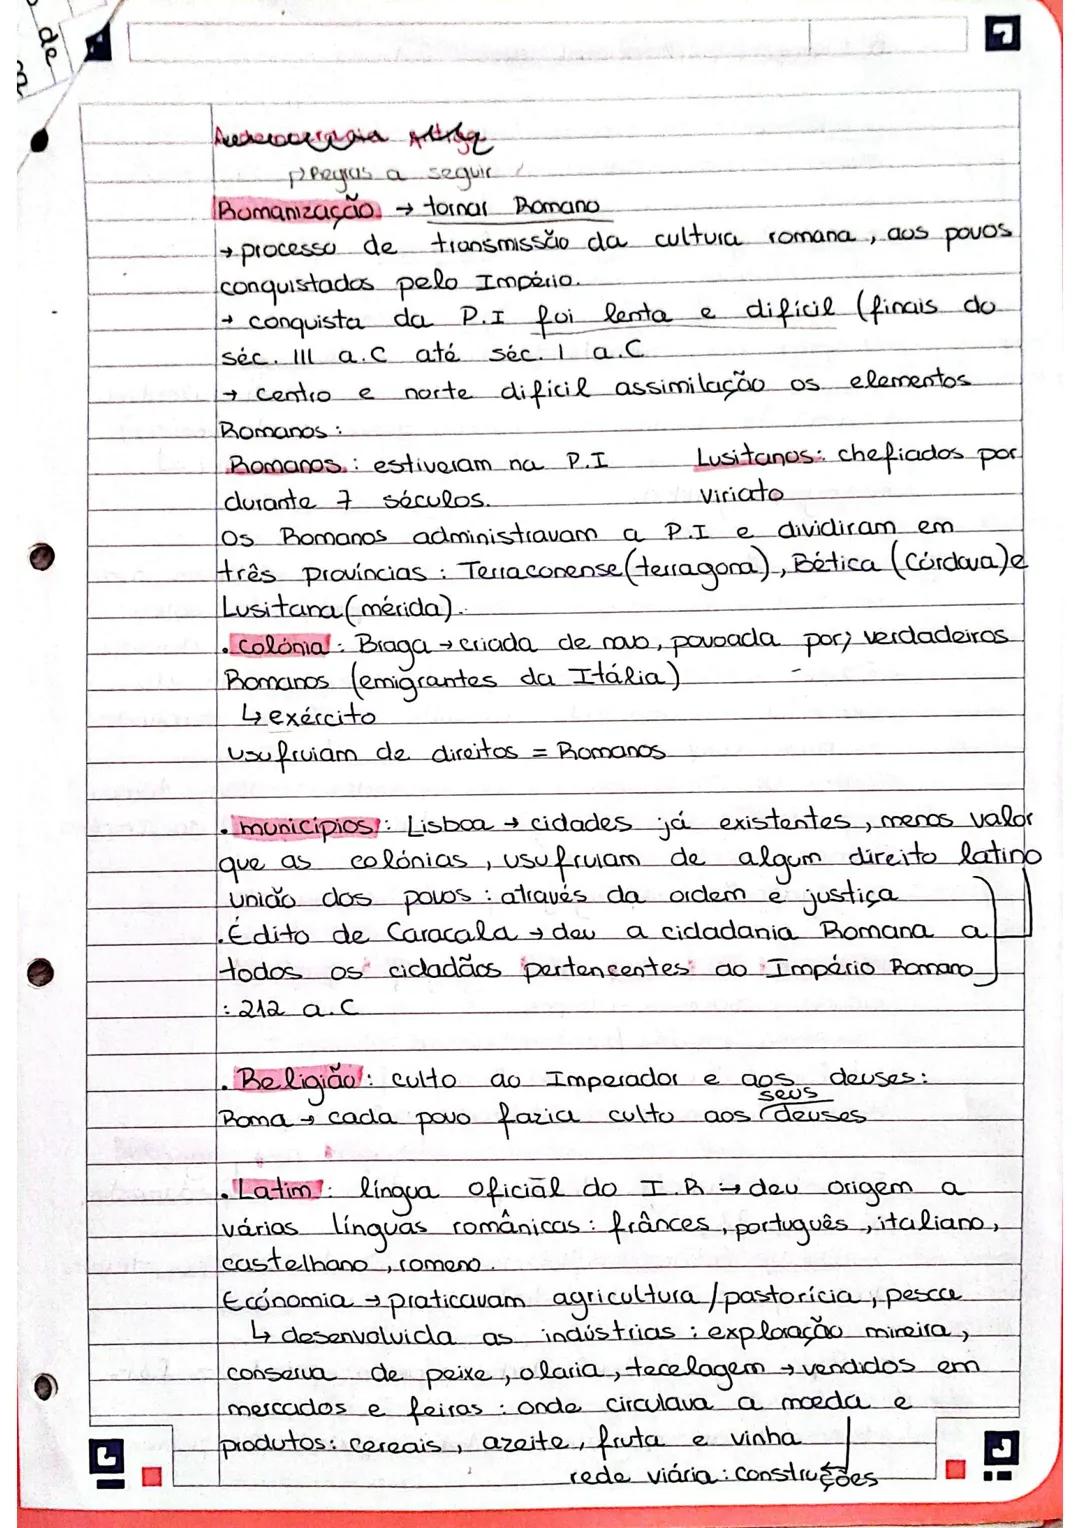 de
↳ Regras a seguir
Romanização → tornar Romano
→ processo de transmissão da cultura romana, aos povos
conquistados pelo Império.
→ conquista da P.I foi lenta e difícil (finais do
séc. III a.C até séc. I a.C
→ centro e norte difícil assimilação os elementos
Romanos:
Romanos: estiveram na P.I Lusitanos: chefiados por
durante 7 séculos. viriato
Os Romanos administravam a P.I e dividiram em
três províncias: Terraconense (terragona), Bética (Córdova) e
Lusitana (mérida).
. Colónia: Braga → criada de novo, povoada por; verdadeiros
Romanos (emigrantes da Itália)
↳ exército
usufruiam de direitos = Romanos
. municípios: Lisboa → cidades já existentes, menos valor
que as colónias, usufruiam de algum direito latino
união dos povos: através da ordem e justiça
. Édito de Caracala → deu a cidadania Romana a
todos os cidadãos pertencentes ao Império Romano
: 212 a.C
. Religião: culto ao Imperador e aos deuses:
Roma → cada povo fazia culto aos seus deuses
. Latim: língua oficial do I.R → deu origem a
vários línguas românicas: frânces, português, italiano,
castelhano, romeno.
Ecónomia → praticavam agricultura / pastorícia, pesca
↳ desenvolvida as indústrias: exploração mineira,
conserva de peixe, olaria, tecelagem → vendidos em
mercados e feiras: onde circulava a moeda e
produtos: cereais, azeite, fruta e vinha
rede viária: construções